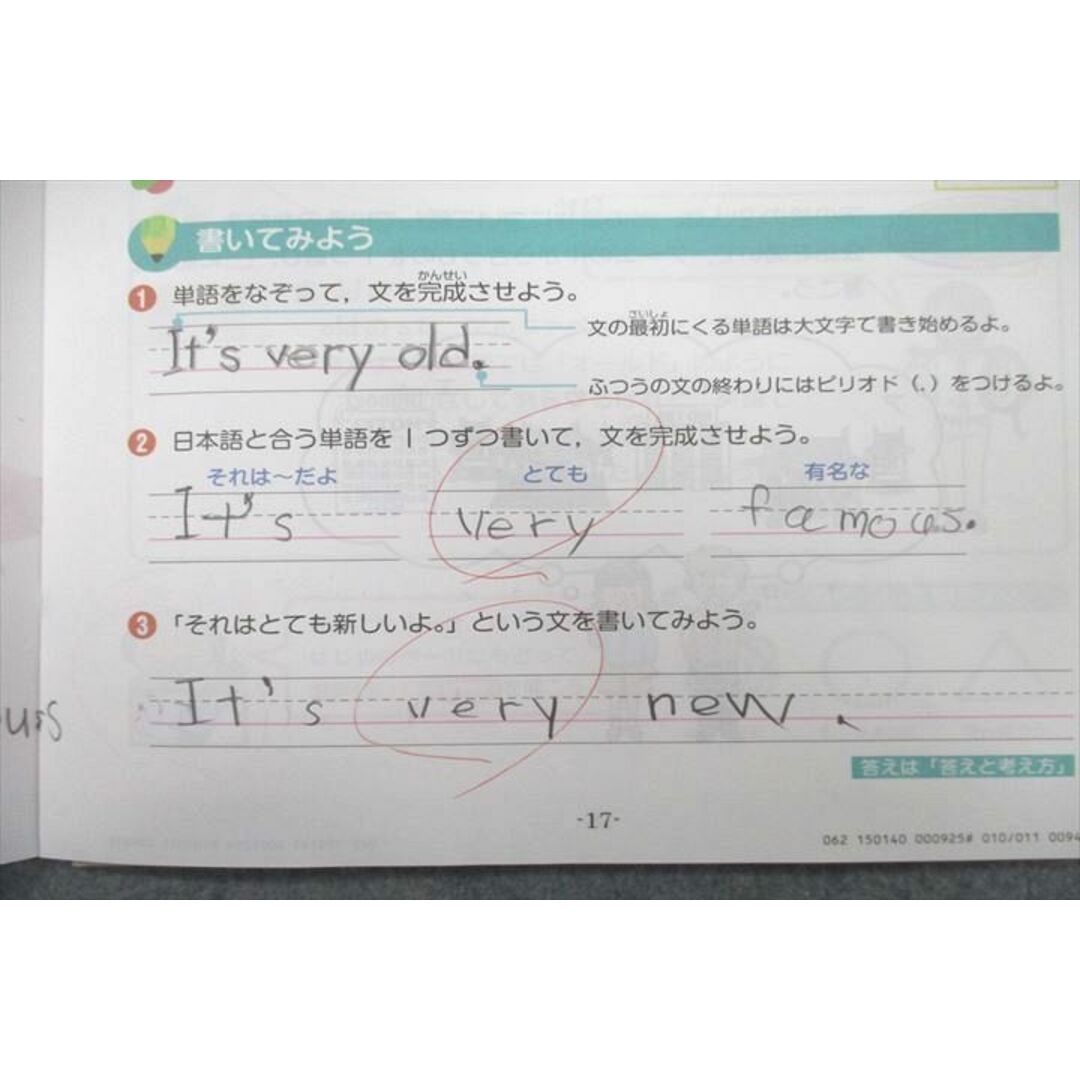 書いてみよう
かんせい
1 単語をなぞって，文を完成させよう。
さいしょ
文の最初にくる単語は大文字で書き始めるよ。
It's very old.
ふつうの文の終わりにはピリオド（.）をつけるよ。
2 日本語と合う単語を1つずつ書いて，文を完成させよう。
それは～だよ とても 有名な
It's very famous.
3 「それはとても新しいよ。」という文を書いてみよう。
It's very new.
答えは「答えと考え方」
-17-
062 150140 000925# 010/011 0094